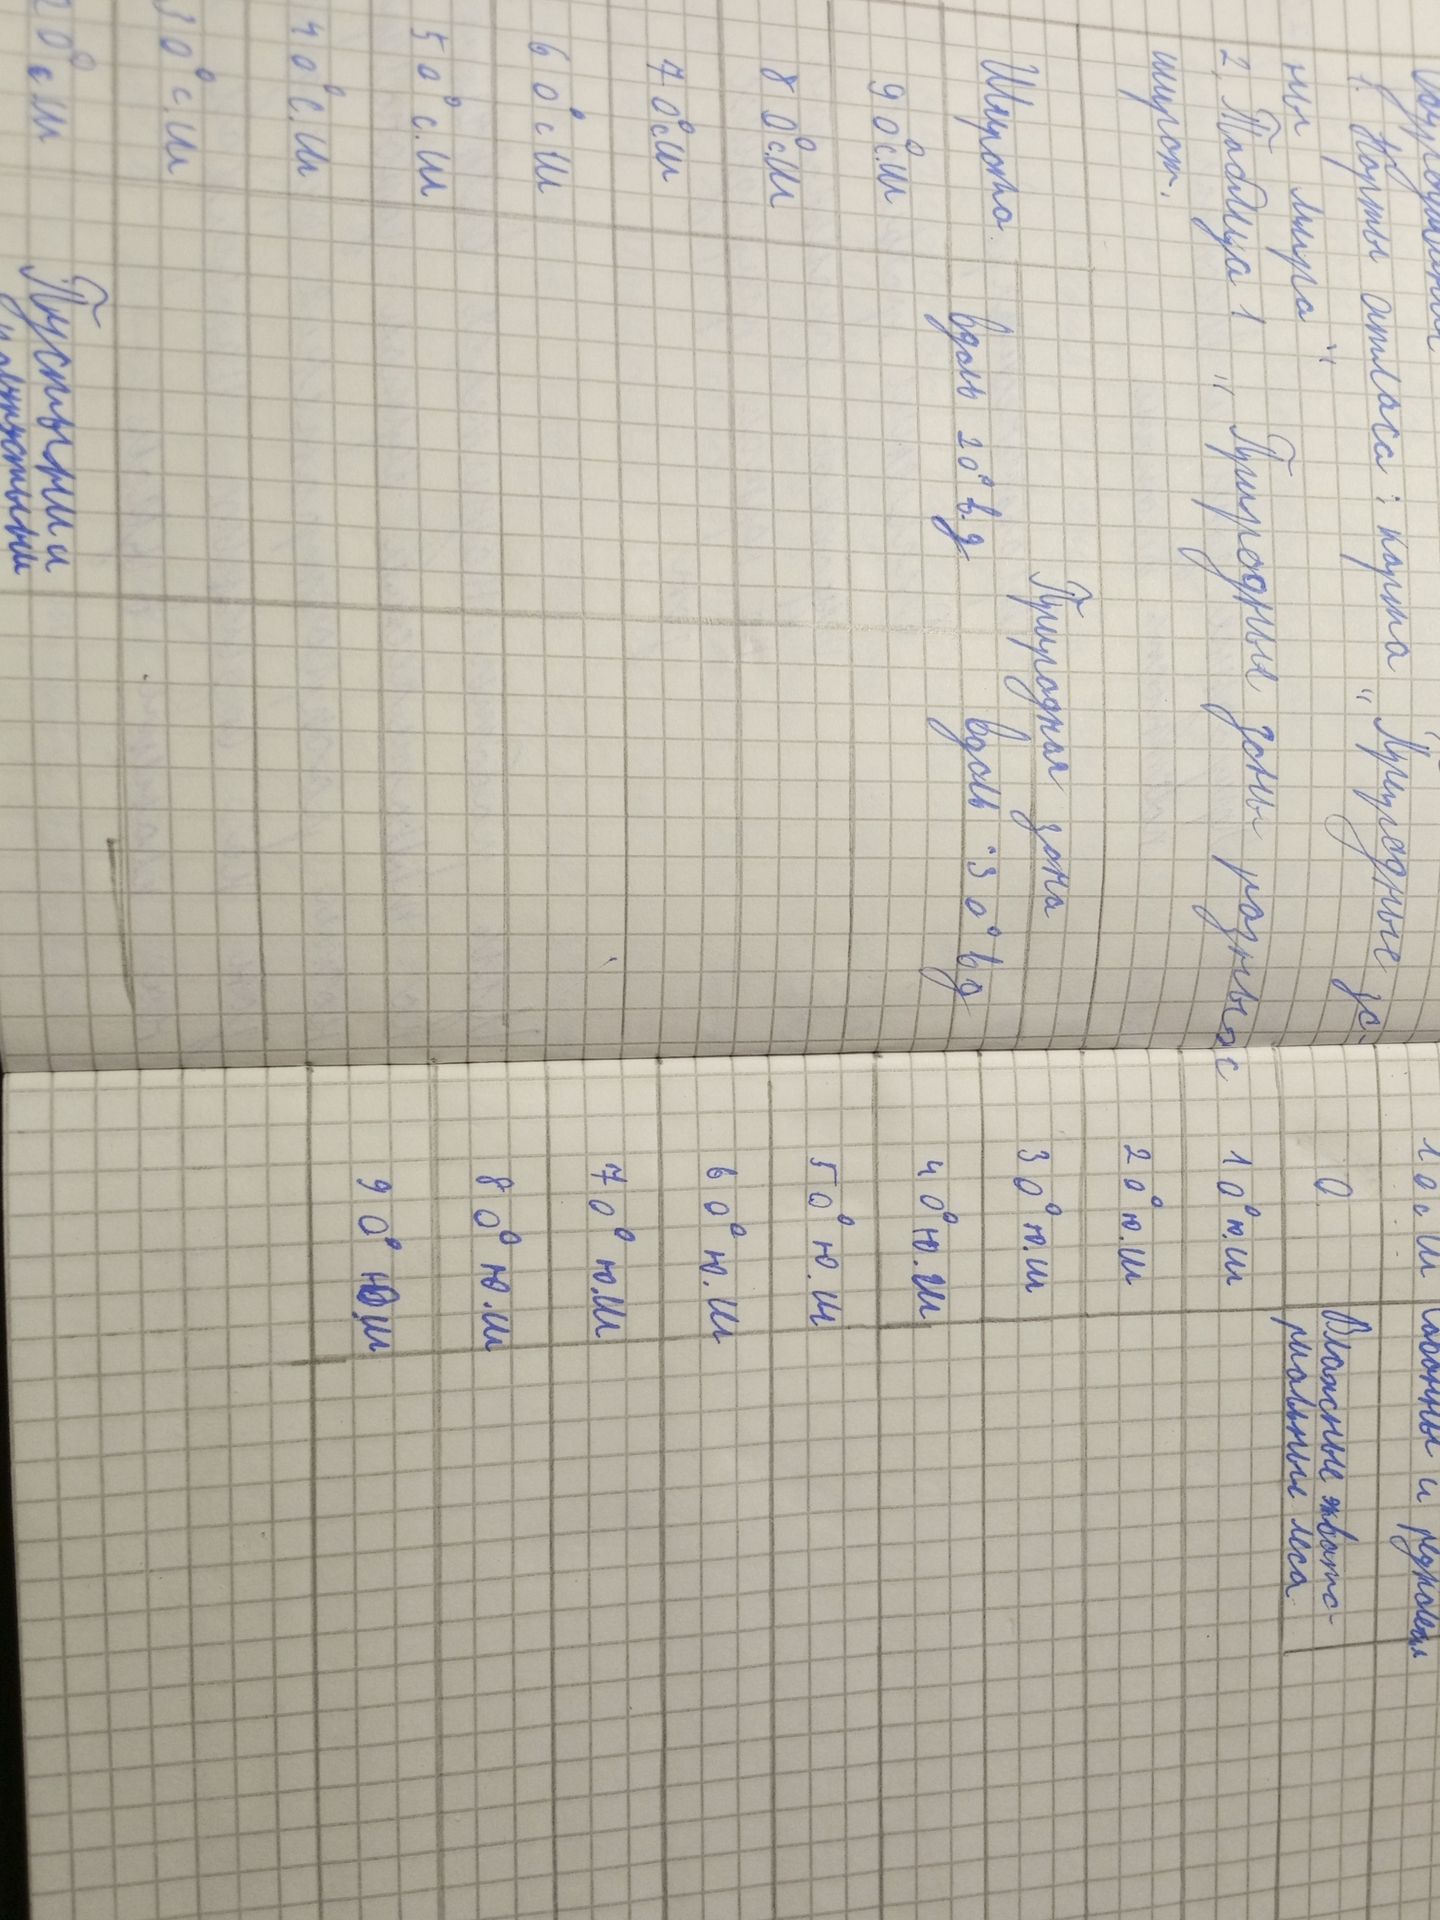 1. Карты атласа: карта "Природные зо-
ны мира"
2. Таблица 1 "Природные зоны разных
широт.
Широта Природная зона
вдоль 20° в.д вдоль 30° в д
90° с.ш
80° с.ш
70° с.ш
60° с.ш
50° с.ш
40° с.ш
30° с.ш
20° с.ш Пустыни и
полупустыни
10 с ш Саванны и редколесья
0 Влажные эквато-
риальные леса
10° ю.ш
20° ю.ш
30° ю.ш
40° ю.ш
50° ю.ш
60° ю.ш
70° ю.ш
80° ю.ш
90° ю.ш